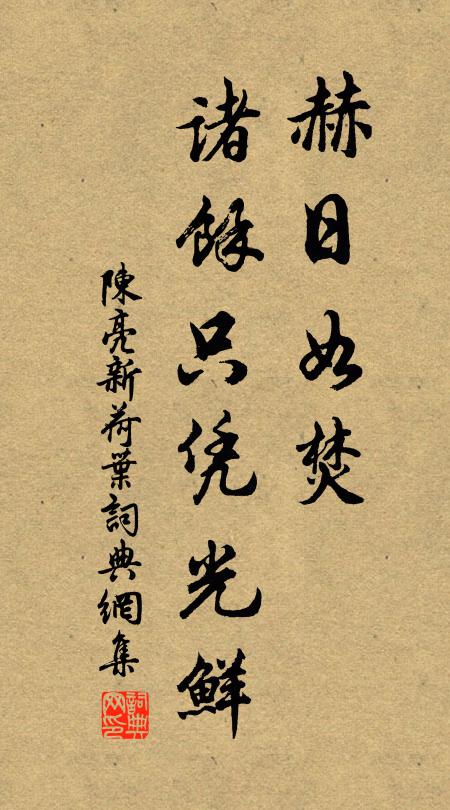 赫日如焚
诸餘只凭光鮮
陳亮新荷葉詞典網集
詞典网印